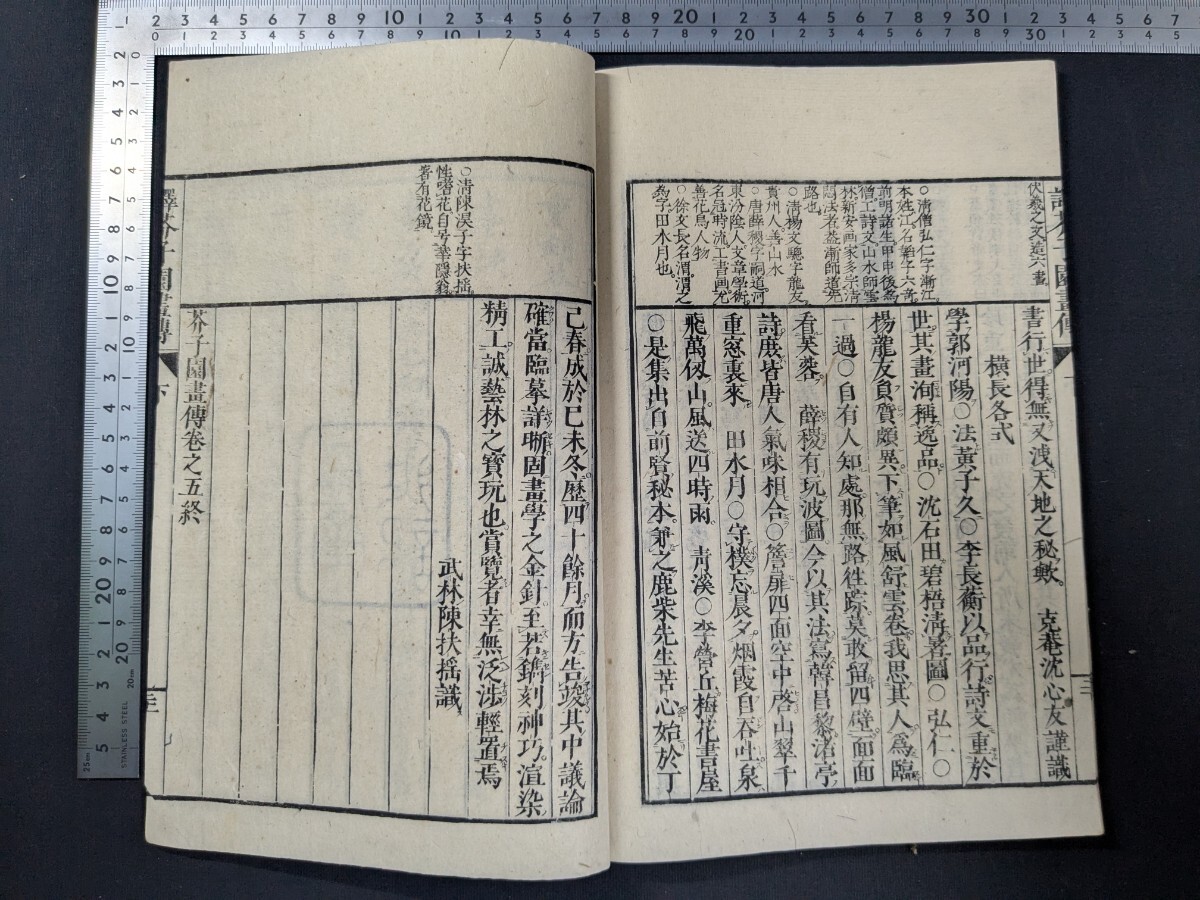 伏羲之文造六畫
○清僧弘仁字漸江
本姓江名韜字六奇
前明諸生甲申後爲
僧工詩文山水師雲
林新安画家多宗清
閟法者盖漸師道先
路也
○清楊文驄字龍友
貴州人善山水
○唐薛稷字嗣道河
東汾陰人文章學術
名冠時流工書画尤
善花鳥人物
○徐文長名渭渭之
爲字田水月也
書行世得無又洩天地之秘歟 克菴沈心友謹識
横長各式
學郭河陽○法黃子久○李長蘅以品行詩文重於
世其畫洵稱逸品○沈石田碧梧清暑圖○弘仁○
楊龍友負質頗異下筆如風舒雲卷我思其人爲臨
一過○自有人知處那無路徃踪莫敢留四壁面面
看芙蓉 薛稷有玩波圖今以其法寫韓昌黎渃亭
詩庻皆唐人氣味相合○簷扉四面空中啓山翠千
重窓裏來 田水月○守樸忘晨夕烟霞自吞吐泉
飛萬仭山風送四時雨 青溪○李營丘梅花書屋
○是集出自前賢秘本兼之鹿柴先生苦心始於丁
○清陳淏子字扶揺
性嗜花自号華隱翁
著有花鏡
己春成於己未冬歷四十餘月而方告竣其中議論
確當臨摹詳晰固畫學之金針至若鐫刻神巧渲染
精工誠藝林之寶玩也賞覽者幸無泛涉輕置焉
武林陳扶揺識
芥子園畫傳卷之五終
譯芥子園畫傳
下
三